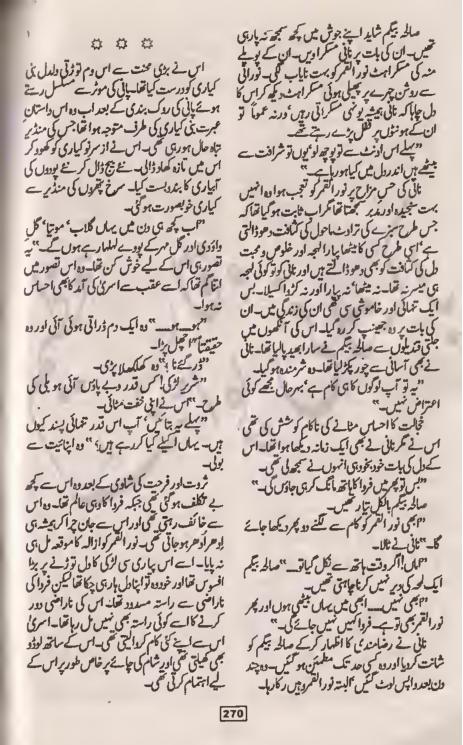 صالحہ بیگم شاید اپنے جوش میں کچھ سمجھ نہ پا رہی
تھیں۔ ان کی بات پر نانی مسکرا دیں۔ ان کے پوپلے
منہ کی مسکراہٹ نور القمر کو بہت نایاب لگی۔ نورانی
سے روشن چہرے پر پھیلی ہوئی مسکراہٹ دیکھ کر اس کا
دل چاہا کہ نانی ہمیشہ یونہی مسکراتی رہیں' ورنہ عموماً تو
ان کے ہونٹوں پر قفل پڑے رہتے تھے۔
"پہلے اس اونٹ سے تو پوچھ لو' یوں تو شرافت سے
بیٹھے ہیں اندر دل میں کیا ہو رہا ہے۔"
نانی کی حس مزاح پر نور القمر کو تعجب ہوا وہ انہیں
بہت سنجیدہ اور مدبر سمجھتا تھا مگر اب ثابت ہو گیا تھا کہ
جس طرح سبزے کی تراوٹ ماحول کی کثافت دھو ڈالتی
ہے' اسی طرح کسی کا میٹھا پیارا لہجہ اور خلوص و محبت
دل کی کثافت کو بھی دھو ڈالتے ہیں اور نانی کو تو کوئی لہجہ
ہی میسر نہ تھا۔ نہ میٹھا' نہ پیارا اور نہ کڑوا کسیلا۔ بس
ایک تنہائی اور خاموشی سی تھی ان کی زندگی میں۔ ان
کی بات پر وہ جھینپ کر رہ گیا۔ اس کی آنکھوں میں
جلتی قندیلوں سے صالحہ بیگم نے سارا بھید پا لیا تھا۔ نانی
نے بھی آسانی سے چور پکڑ لیا تھا۔ وہ شرمندہ ہو گیا۔
"یہ تو آپ لوگوں کا ہی کام ہے' بہرحال مجھے کوئی
اعتراض نہیں۔"
خجالت کا احساس مٹانے کی ناکام کوشش کی تھی
اس نے مگر نانی نے بھی ایک زمانہ دیکھا ہوا تھا۔ اس
کے دل کی بات خود بخود ہی انہوں نے سمجھ لی تھی۔
"بس تو پھر میں فردا کا ہاتھ مانگ کر ہی جاؤں گی۔"
صالحہ بیگم بالکل تیار تھیں۔
"ابھی نور القمر کو کام سے لگنے دو پھر دیکھا جائے
گا۔" نانی نے ٹالا۔
"اماں! اگر وقت ہاتھ سے نکل گیا تو۔" صالحہ بیگم
ایک لمحہ کی دیر نہیں کرنا چاہتی تھیں۔
"بھئی نہیں۔۔۔ ابھی میں یہاں بیٹھی ہوں اور پھر
نور القمر بھی تو ہے۔ فردا کہیں نہیں جائے گی۔"
نانی نے رضامندی کا اظہار کر کے صالحہ بیگم کو
شانت کر دیا اور وہ کسی حد تک مطمئن ہو گئیں۔ وہ چند
دن بعد واپس لوٹ گئیں' البتہ نور القمر وہیں رکا رہا۔
☼ ☼ ☼
اس نے بڑی محنت سے اس دم توڑتی ولدل بنی
کیاری کو درست کیا تھا۔ پانی کی موٹر سے مسلسل رستے
ہوئے پانی کی روک بندی کے بعد اب وہ اس داستان
عبرت بنی کیاری کی طرف متوجہ ہوا تھا' جس کی منڈیر
تباہ حال ہو رہی تھی۔ اس نے از سر نو کیاری کو کھود کر
اس میں تازہ کھاد ڈالی۔ نئے بیج ڈال کر نئے پودوں کی
آبیاری کا بندوبست کیا۔ سرخ پتھروں کی منڈیر سے
کیاری خوبصورت ہو گئی۔
"اب کچھ ہی دن میں یہاں گلاب' موتیا' گل
داؤدی اور گل مہر کے پودے لہلہا رہے ہوں گے۔" یہ
تصور ہی اس کے لیے خوش کن تھا۔ وہ اس تصور میں
اتنا گم تھا کہ اسے عقب سے اسریٰ کی آمد کا بھی احساس
نہ ہوا۔
"ہو۔۔۔ ہو۔۔۔" وہ ایک دم ڈراتی ہوئی آئی اور وہ
حقیقتاً اچھل پڑا۔
"ڈر گئے نا؟" وہ کھلکھلا پڑی۔
"شریر لڑکی! کس قدر دبے پاؤں آئی ہو بلی کی
طرح۔" اس نے اپنی خفت مٹائی۔
"پہلے یہ بتائیں' آپ اس قدر تنہائی پسند کیوں
ہیں۔ یہاں اکیلے کیا کر رہے ہیں؟" وہ اپنائیت سے
بولی۔
ثروت اور فرحت کی شادی کے بعد وہ اس سے کچھ
بے تکلف ہو گئی تھی جبکہ فردا کا وہی عالم تھا۔ وہ اس
سے خائف رہتی تھی اور اس سے جان چرا کر ہمیشہ ہی
ادھر ادھر ہو جاتی تھی۔ نور القمر کو ازالہ کا موقعہ مل ہی
نہ پایا۔ اسے اس پیاری سی لڑکی کا دل توڑنے پر بڑا
افسوس تھا اور خود وہ تو اپنا دل ہار ہی چکا تھا لیکن فردا کی
ناراضی سے راستہ مسدود تھا۔ اس کی ناراضی دور
کرنے کا اسے کوئی راستہ بھی نہیں مل رہا تھا۔ اسریٰ
اس سے اپنے کئی کام کروا لیتی تھی۔ اس کے ساتھ لوڈو
بھی کھیلتی تھی اور شام کی چائے پر خاص طور پر اس کے
لیے اہتمام کرتی تھی۔
270